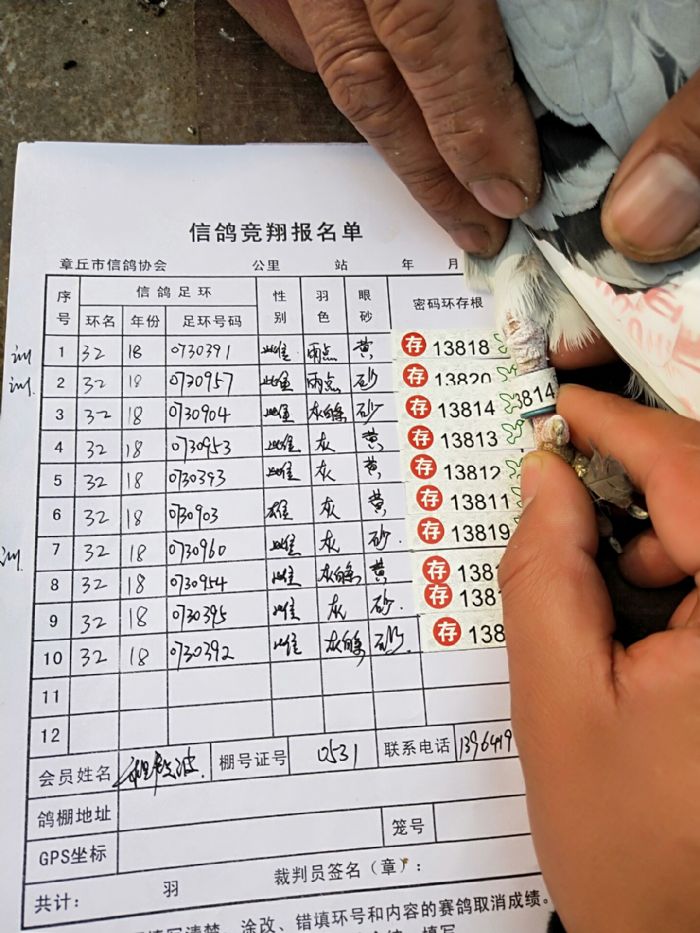 信鸽竞翔报名单
章丘市信鸽协会 公里 站 年 月
序号 信鸽足环 性别 羽色 眼砂 密码环存根
环名 年份 足环号码
1 32 18 0730391 雌 雨点 黄 存 13818
2 32 18 0730957 雌 雨点 砂 存 13820
3 32 18 0730904 雌 灰白条 砂 存 13814
3814
4 32 18 0730953 雌 灰 黄 存 13813
5 32 18 0730393 雌 灰 黄 存 13812
6 32 18 0730903 雄 灰 黄 存 13811
7 32 18 0730960 雌 灰 砂 存 13819
8 32 18 0730954 雌 灰白条 黄 存 1381
9 32 18 0730395 雌 灰 砂 存 1381
10 32 18 0730392 雌 灰白条 砂 存 138
11
12
会员姓名 棚号证号 0531 联系电话 1396419
鸽棚地址
笼号
GPS坐标
共计： 羽 裁判员签名（章）：
填写清楚、涂改、错填环号和内容的赛鸽取消成绩。
填写